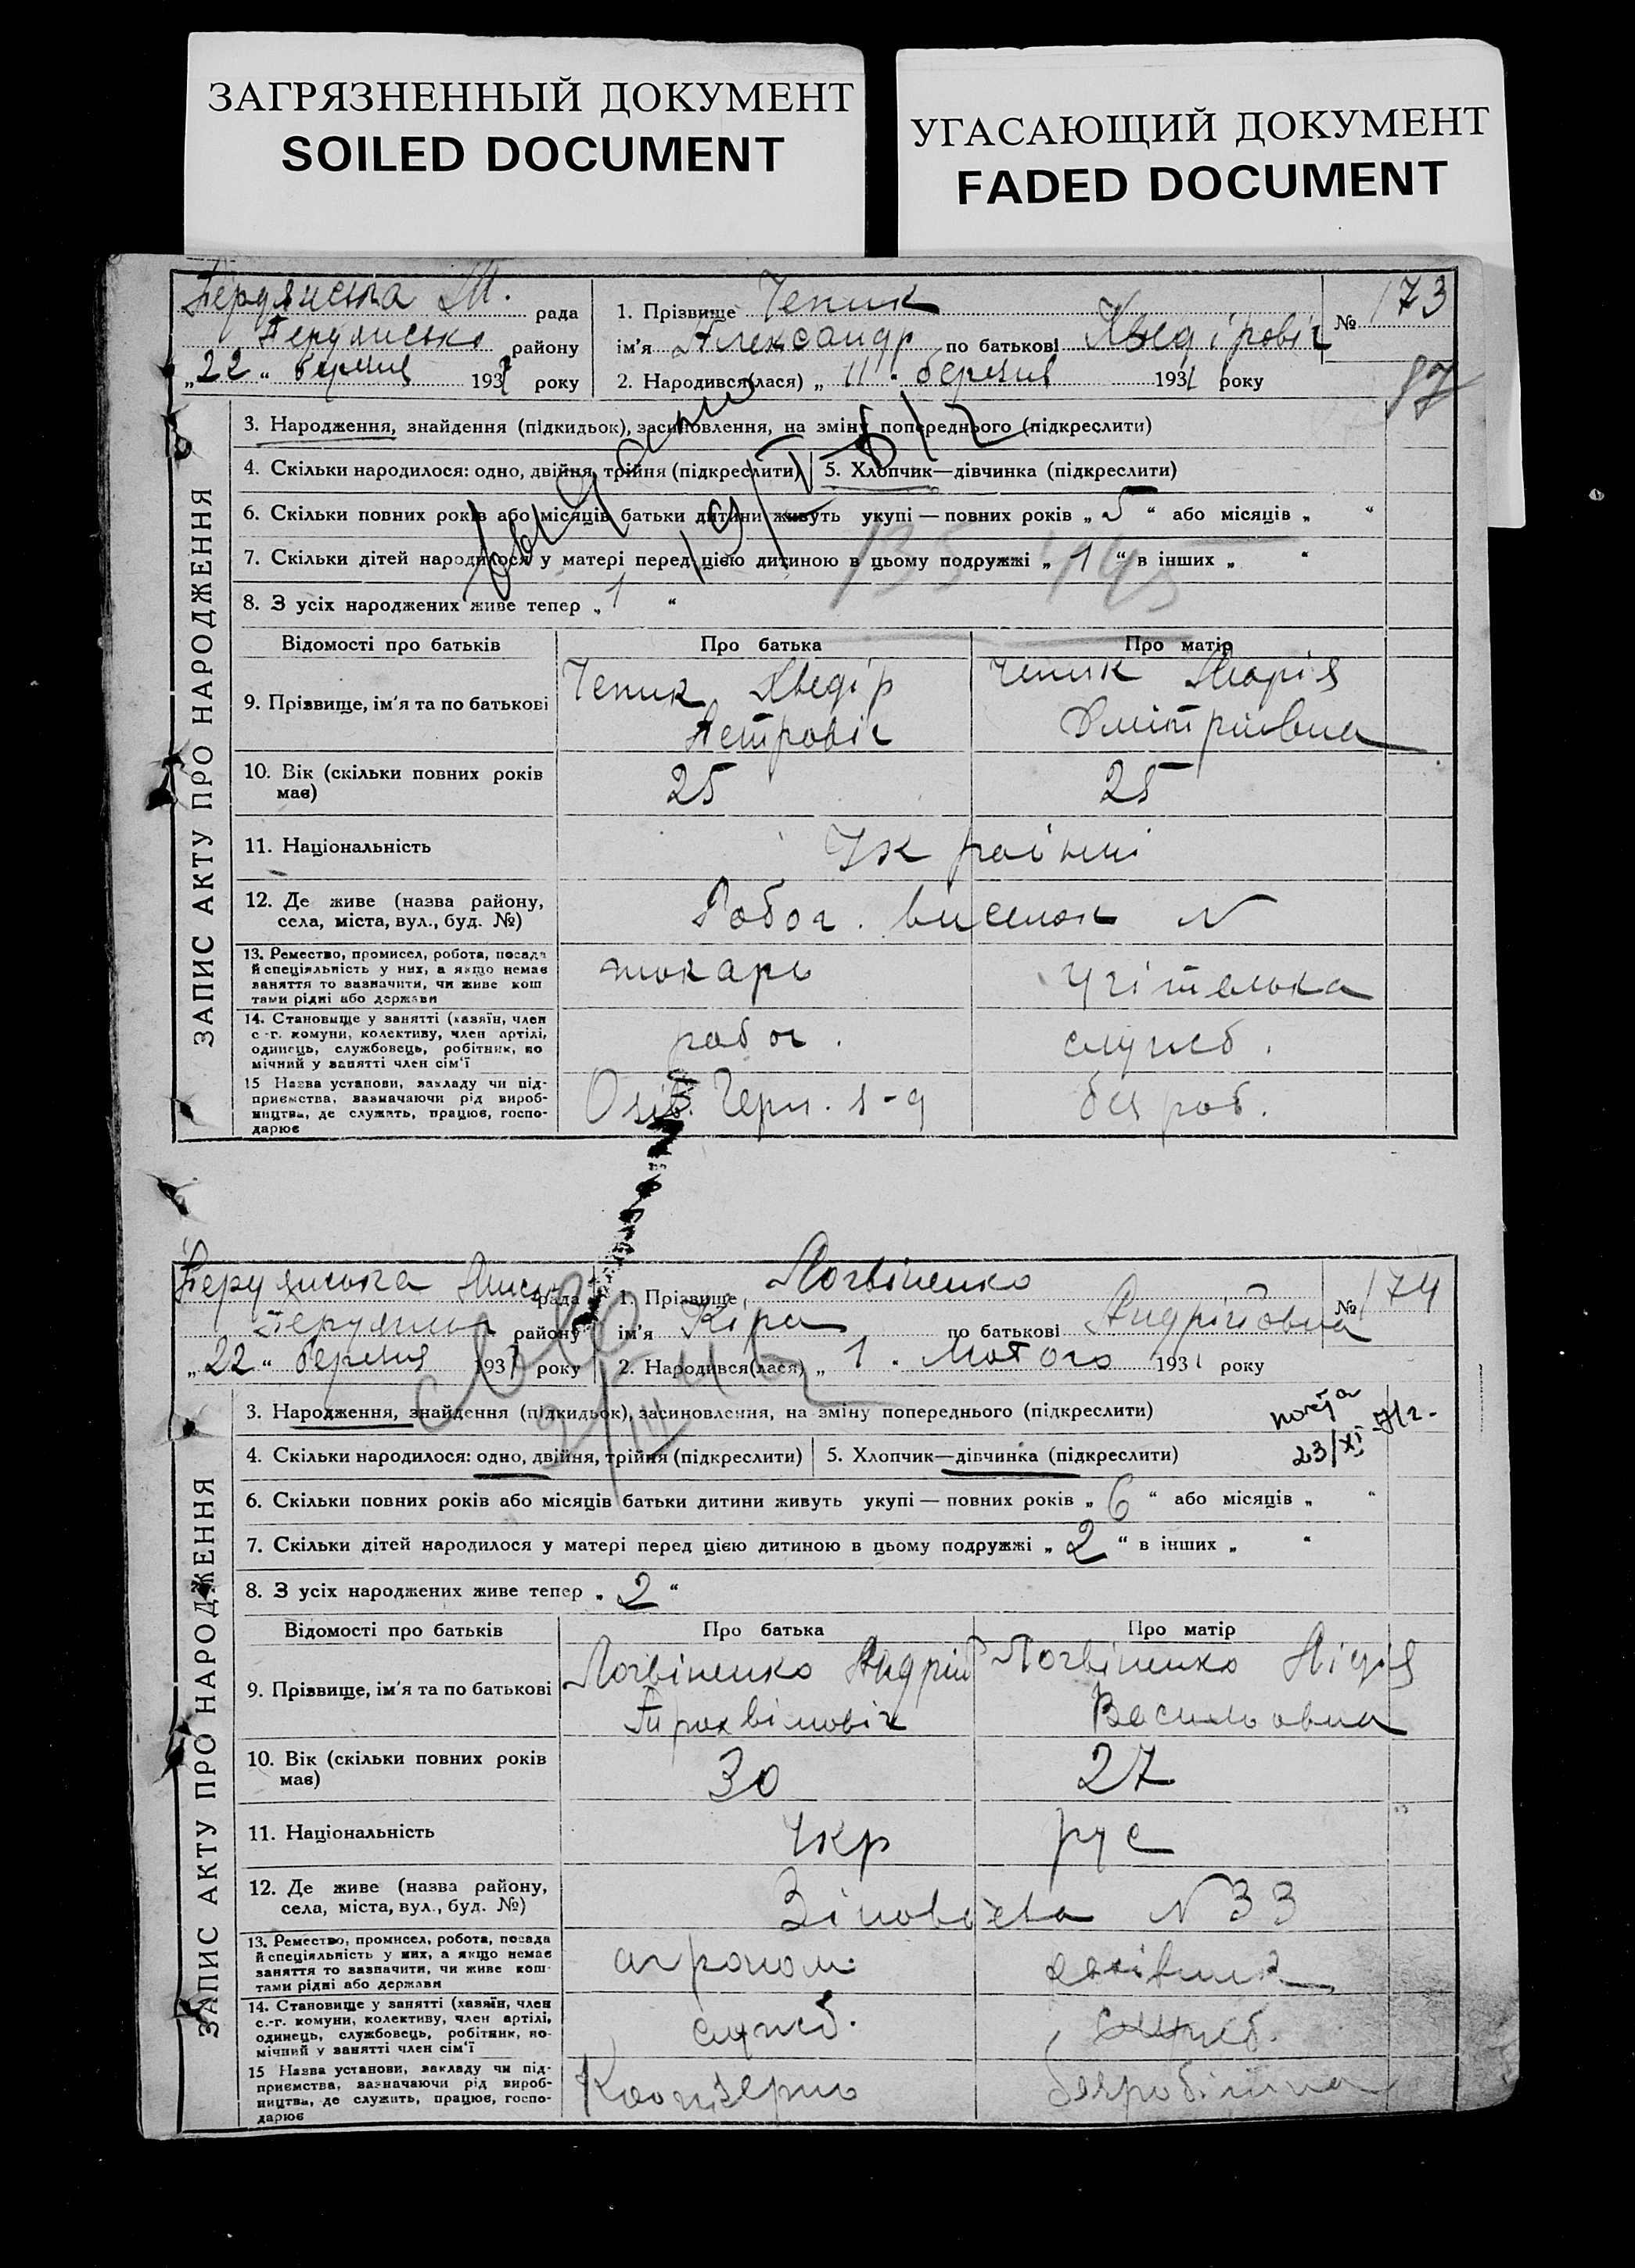 ЗАГРЯЗНЕННЫЙ ДОКУМЕНТ
SOILED DOCUMENT
УГАСАЮЩИЙ ДОКУМЕНТ
FADED DOCUMENT
ЗАПИС АКТУ ПРО НАРОДЖЕННЯ
Бердянська М. рада
Бердянсько району
„22“ березня 193 року
1. Прізвище Чепик
ім'я Александр по батькові Хведіровіч
№ 173
2. Народився(лася) „11“ березня 1931 року
87
3. Народження, знайдення (підкидьок), засиновлення, на зміну попереднього (підкреслити)
4. Скільки народилося: одно, двійня, трійня (підкреслити) 5. Хлопчик—дівчинка (підкреслити)
6. Скільки повних років або місяців батьки дитини живуть укупі — повних років „5“ або місяців „ “
7. Скільки дітей народилося у матері перед цією дитиною в цьому подружжі „1“ в інших „ “
8. З усіх народжених живе тепер „1“
Відомості про батьків Про батька Про матір
9. Прізвище, ім'я та по батькові Чепик Хведір Петровіч Чепик Марія Дмітрієвна
10. Вік (скільки повних років має) 25 25
11. Національність Українці
12. Де живе (назва району, села, міста, вул., буд. №) Робоч. виселок N
13. Ремество, промисел, робота, посада й спеціяльність у них, а якщо немає заняття то зазначити, чи живе коштами рідні або держави токарь учітелька
14. Становище у занятті (хазяїн, член с.-г. комуни, колективу, член артілі, одинець, службовець, робітник, помічний у занятті член сім'ї робоч. служб.
15 Назва установи, закладу чи підприємства, зазначаючи рід виробництва, де служить, працює, господарює
ЗАПИС АКТУ ПРО НАРОДЖЕННЯ
Бердянська рада
району
„22“ березня 193 року
1. Прізвище Логвіненко
ім'я Кіра по батькові Андрійовна
№ 174
2. Народився(лася) „1“ Лютого 1931 року
3. Народження, знайдення (підкидьок), засиновлення, на зміну попереднього (підкреслити)
23/XI-71г.
4. Скільки народилося: одно, двійня, трійня (підкреслити) 5. Хлопчик—дівчинка (підкреслити)
6. Скільки повних років або місяців батьки дитини живуть укупі — повних років „6“ або місяців „ “
7. Скільки дітей народилося у матері перед цією дитиною в цьому подружжі „2“ в інших „ “
8. З усіх народжених живе тепер „2“
Відомості про батьків Про батька Про матір
9. Прізвище, ім'я та по батькові Логвіненко Андрій Логвіненко Лідія Васильовна
10. Вік (скільки повних років має) 30 27
11. Національність Укр рус
12. Де живе (назва району, села, міста, вул., буд. №) N 33
13. Ремество, промисел, робота, посада й спеціяльність у них, а якщо немає заняття то зазначити, чи живе коштами рідні або держави агроном
14. Становище у занятті (хазяїн, член с.-г. комуни, колективу, член артілі, одинець, службовець, робітник, помічний у занятті член сім'ї служб. служб.
15 Назва установи, закладу чи підприємства, зазначаючи рід виробництва, де служить, працює, господарює безробітна